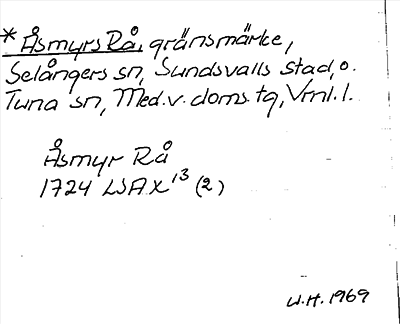 * Åsmyrs Rå, gränsmärke,
Selångers sn, Sundsvalls stad, o.
Tuna sn, Med.v. doms. tg, Vrnl. l.
Åsmyr Rå
1724 LSA X¹³ (2)
W.H. 1969